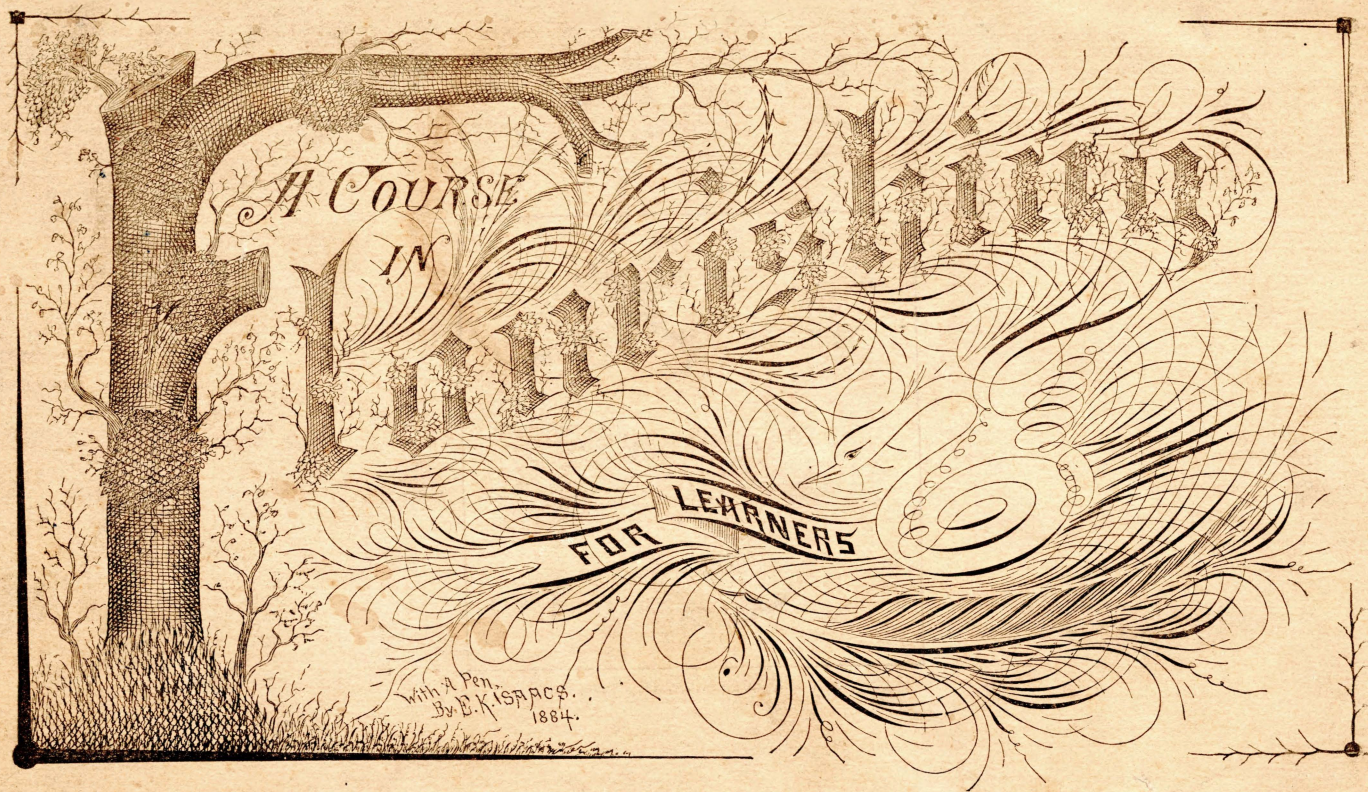 A COURSE
IN
Flourishing
FOR LEARNERS
With A Pen,
By E.K. ISAACS.
1884.